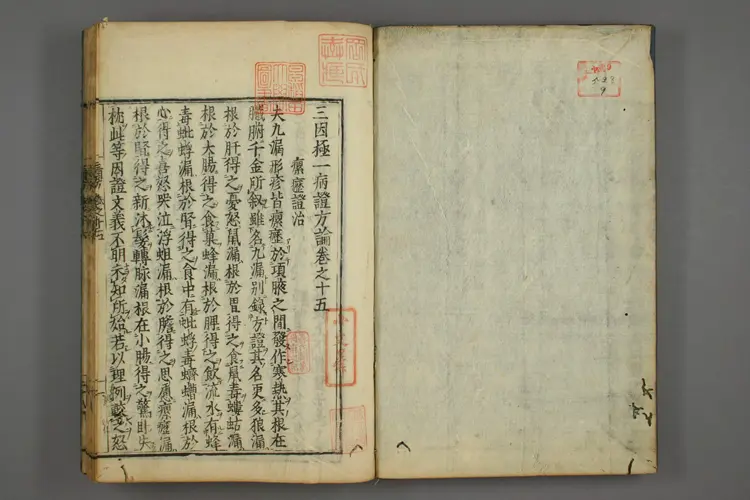 三因極一病證方論卷之十五
瘰癧證治
夫九漏形疹皆瘰癧於項腋之間發作寒熱其根在
臟腑千金所叙雖名九漏別錄方證其名更多狼漏
根於肝得之憂怒鼠漏根於胃得之食鼠毒螻蛄漏
根於大腸得之食菓蜂漏根於脾得之飲流水有蜂
毒蚍蜉漏根於腎得之食中有蚍蜉毒蠐螬漏根於
心得之喜怒哭泣浮蛆漏根於膽得之思慮瘰癧漏
根於腎得之新沐髮轉脉漏根在小腸得之驚臥失
枕此等因證文義不明未知所始若以理例

之怒